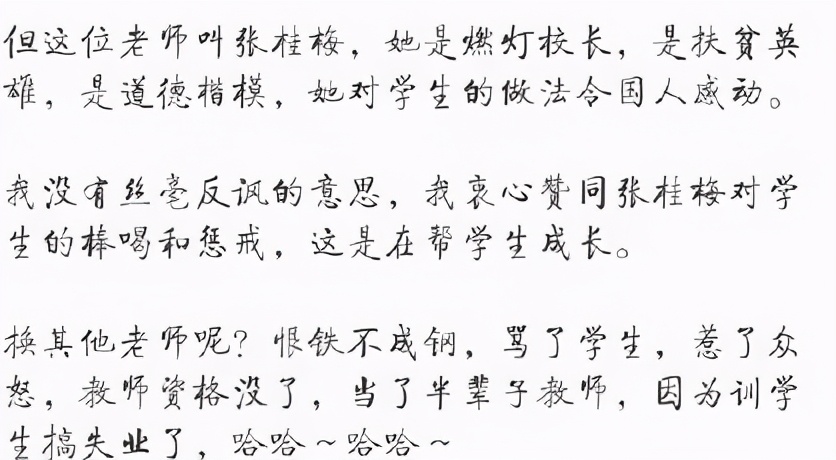 但这位老师叫张桂梅，她是燃灯校长，是扶贫英
雄，是道德楷模，她对学生的做法令国人感动。
我没有丝毫反讽的意思，我衷心赞同张桂梅对学
生的棒喝和惩戒，这是在帮学生成长。
换其他老师呢？恨铁不成钢，骂了学生，惹了众
怒，教师资格没了，当了半辈子教师，因为训学
生搞失业了，哈哈～哈哈～